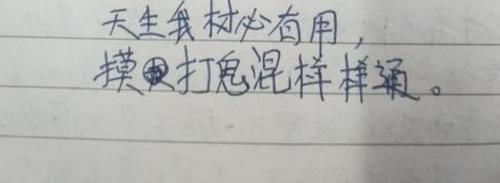 天生我材必有用，
摸打鬼混样样通。